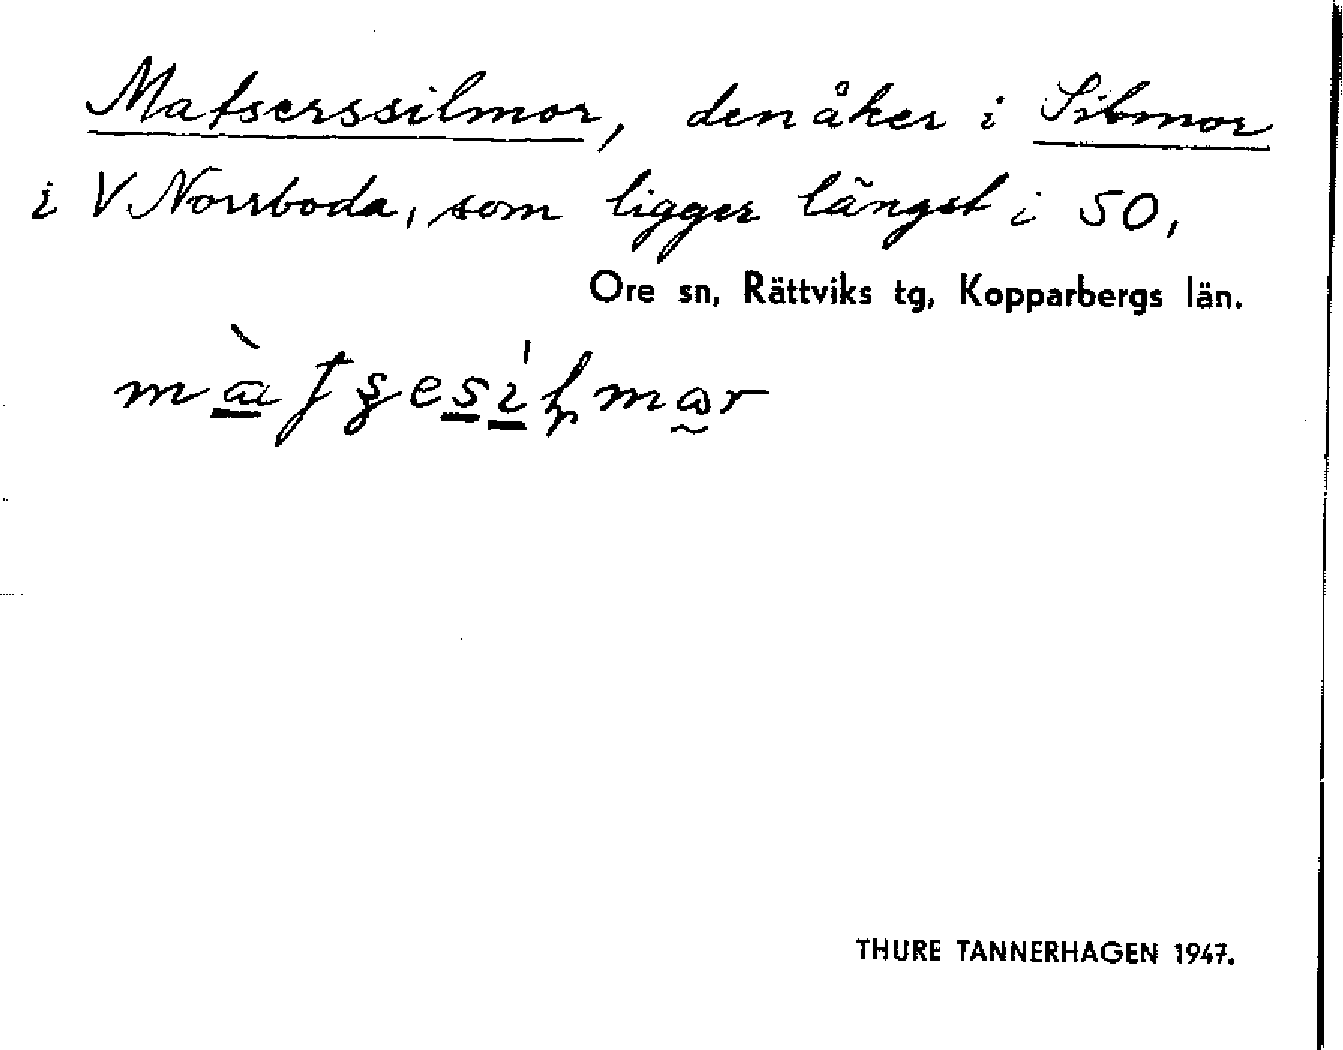 Matserssilmor, den åker i Silmor
i V Norrboda, som ligger längst i SO,
Ore sn, Rättviks tg, Kopparbergs län.
THURE TANNERHAGEN 1947.